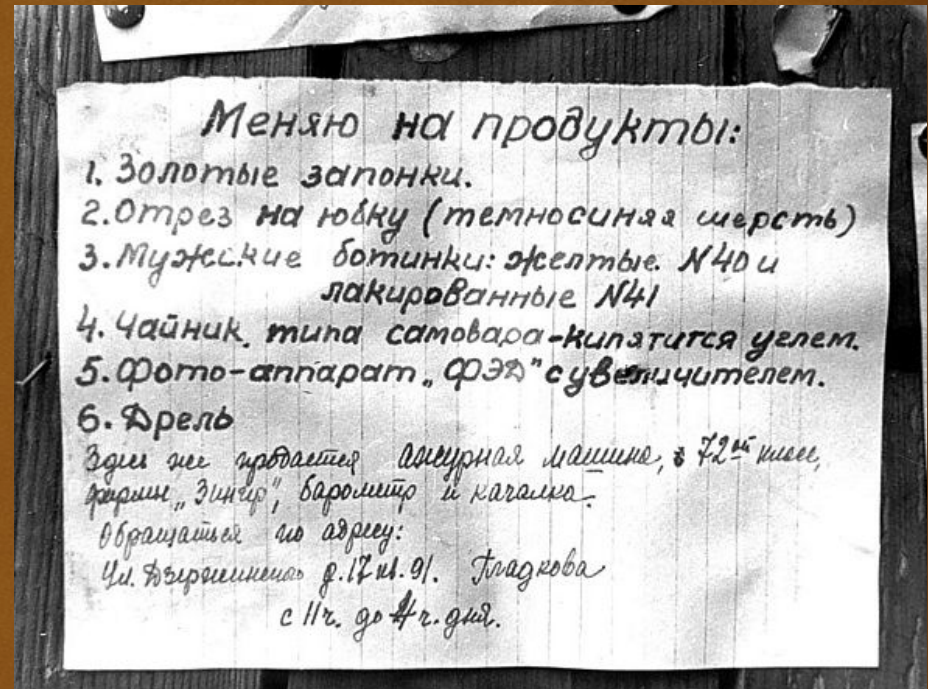 Меняю на продукты:
1. Золотые запонки.
2. Отрез на юбку (темносиняя шерсть)
3. Мужские ботинки: желтые N40 и
лакированные N41
4. Чайник типа самовара-кипятится углем.
5. Фото-аппарат „ФЭД" с увеличителем.
6. Дрель
Здесь же продается ажурная машина, 72ой класс,
фирмы „Зингер", барометр и качалка.
Обращаться по адресу:
Ул. Дзержинского д.17 кв.91. Гладкова
с 11ч. до 4ч. дня.